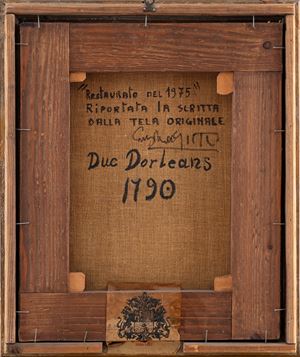 "Restaurato nel 1975"
Riportata la scritta
dalla tela originale
Duc Dorleans
1790